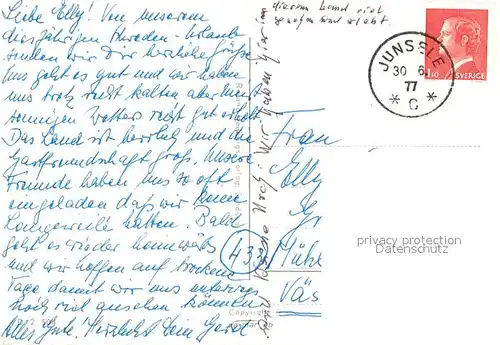 Liebe Elly! Von unserem
diesjährigen Schweden-Urlaub
senden wir Dir herzliche Grüße
Uns geht es gut und wir haben
uns trotz recht kalten aber meist
sonnigen Wetters recht gut erholt
Das Land ist herrlich und die
Gastfreundschaft groß. Unsere
Freunde haben uns so oft
eingeladen daß wir keine
Langeweile hatten. Bald
geht es wieder heimwärts
und wir hoffen auf trockene
Tage damit wir uns unterwegs
noch viel ansehen können
Alles Gute. Herzlichst Dein Gerd
wir haben hier in
diesem Land viel
gesehen und erlebt.
JUNSELE
30 6
77
* C *
1.10
SVERIGE
Frau
Elly
433
Mühl
Väs
privacy protection
Datenschutz
Copyright